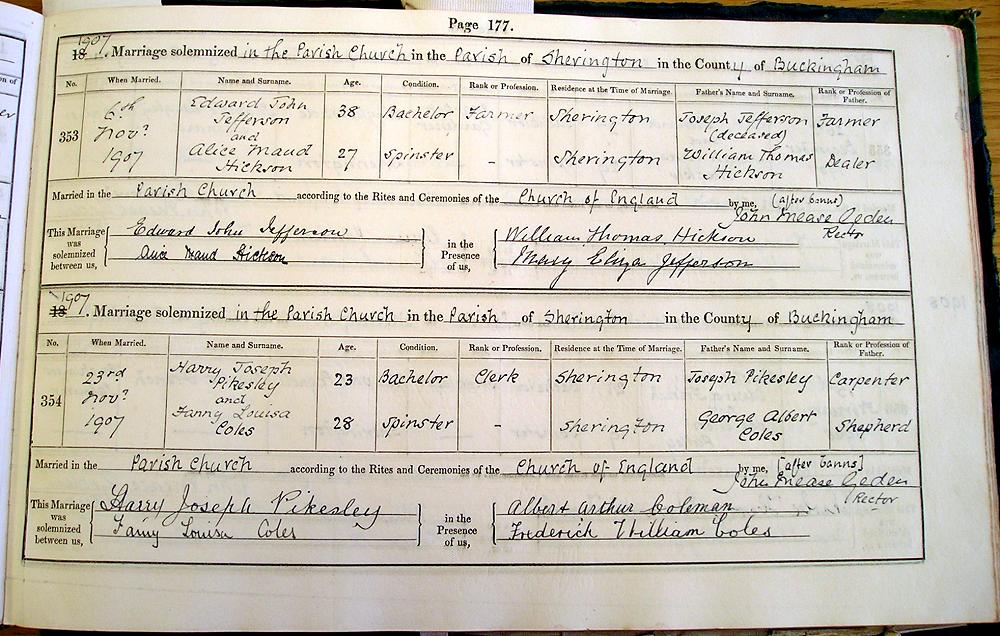 Page 177.
1907
18 . Marriage solemnized in the Parish Church in the Parish of Sherington in the County of Buckingham
No. When Married. Name and Surname. Age. Condition. Rank or Profession. Residence at the Time of Marriage. Father's Name and Surname. Rank or Profession of Father.
353 6th Novr 1907 Edward John Jefferson 38 Bachelor Farmer Sherington Joseph Jefferson (deceased) Farmer
and
Alice Maud Hickson 27 Spinster - Sherington William Thomas Hickson Dealer
Married in the Parish Church according to the Rites and Ceremonies of the Church of England by me, (after banns)
John Mease Geden
Rector
This Marriage was solemnized between us, Edward John Jefferson
Alice Maud Hickson
in the Presence of us, William Thomas Hickson
Mary Eliza Jefferson
1907
18 . Marriage solemnized in the Parish Church in the Parish of Sherington in the County of Buckingham
No. When Married. Name and Surname. Age. Condition. Rank or Profession. Residence at the Time of Marriage. Father's Name and Surname. Rank or Profession of Father.
354 23rd Novr 1907 Harry Joseph Pikesley 23 Bachelor Clerk Sherington Joseph Pikesley Carpenter
and
Fanny Louisa Coles 28 Spinster - Sherington George Albert Coles Shepherd
Married in the Parish Church according to the Rites and Ceremonies of the Church of England by me, [after banns]
John Mease Geden
Rector
This Marriage was solemnized between us, Harry Joseph Pikesley
Fanny Louisa Coles
in the Presence of us, Albert Arthur Coleman
Frederick William Coles